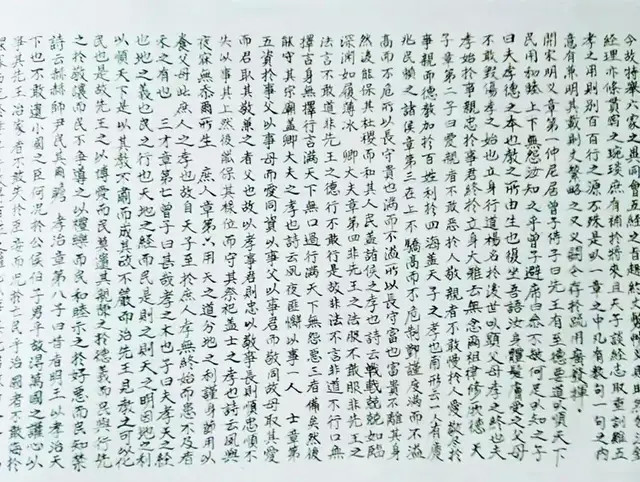 今故特舉六家之異同會五經之旨趣約文敷暢
經理亦條貫閟之琬琰庶有補於將來且夫子談經志取垂訓雖五
孝之用則別百百行之源不殊是以一章之中凡有數句一句之內
意有兼明其載則文繁略之又义闕今存於疏用廣發揮
開宗明义章第一仲尼居曾子侍子曰先王有至德要道以順天下
民用和睦上下無怨汝知之乎曾子避席曰參不敏何足以知之子
曰夫孝德之本也教之所由生也復坐吾語汝身體髮膚受之父母
不敢毀傷孝之始也立身行道楊名於後世以顯父母孝之終也夫
孝始於事親忠於事君終於立身大雅云無念爾祖律修厥德 天
子章第二子曰愛親者不敢惡於人敬親者不敢慢於人愛敬尽於
事親而德教加於百姓利於四海盖天子之孝也甫形云一人有慶
兆民賴之 諸侯章第三在上不驕高而不危制節謹度滿而不溢
高而不危所以長守貴也滿而不溢所以長守富也富貴不離其身
然後能保其社稷而和其人民盖諸侯之孝也詩云戰戰兢兢如臨
深淵如履薄冰 卿大夫章第四非先王之法服不敢服非先王之
法言不敢道非先王之德行不敢行是故非法不言非道不行口無
擇言身無擇行言滿天下無口過行滿天下無怨惡三者備矣然後
能守其宗廟盖卿大夫之孝也詩云夙夜匪懈以事一人 士章第
五資於事父以事母而愛同資以事父以事君而敬同故母取其愛
而君取其敬兼之者父也故以孝事君則忠以敬事長則順忠順不
失以事其上然後能保其祿位而守其祭祀盖士之孝也詩云夙興
夜寐無忝爾所生 庶人章第六用天之道分地之利謹身節用以
養父母此庶人之孝也故自天子至於庶人孝無終始而患不及者
未之有也 三才章第七曾子曰甚哉孝之大也子曰夫孝天之經
也地之義也民之行也天地之經而民是則之則天之明因地之利
以順天下是以其教不肅而成其政不嚴而治先王見教之可以化
民也是故先王之以博愛而民莫遺其親陳之於德義而民興行先
之於敬讓而民不爭導之以禮樂而民和睦示之於好惡而民知禁
詩云赫赫師尹民具爾瞻 孝治章第八子曰昔者明王以孝治天
下也不敢遺小國之臣何況於公侯伯子男乎故得萬國之讙心以
事其先王治家者不敢失於臣妾而況於